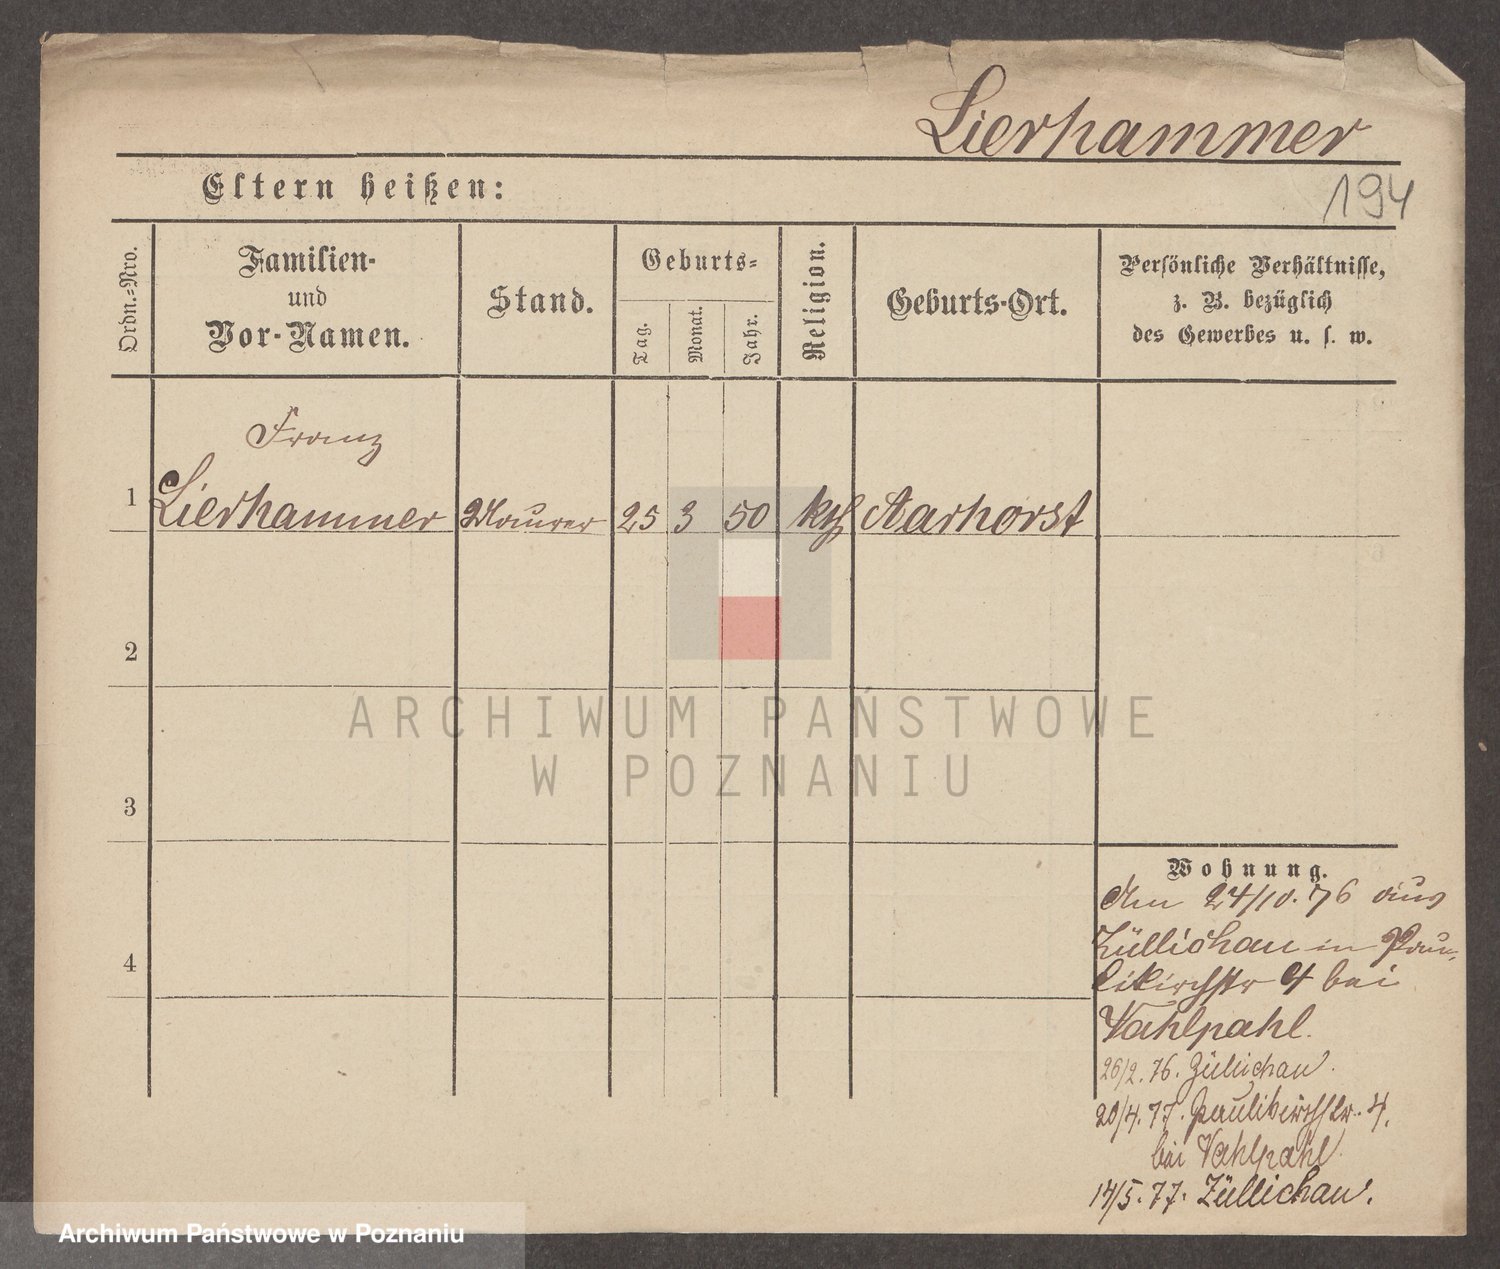 Lierhammer
194
Eltern heißen:
Ordn.-Nro.
Familien-
und
Vor-Namen.
Stand.
Geburts-
Tag.
Monat.
Jahr.
Religion.
Geburts-Ort.
Persönliche Verhältnisse,
z. B. bezüglich
des Gewerbes u. s. w.
Franz
1 Lierhammer Maurer 25 3 50 kth Aarhorst
2
3
4
ARCHIWUM PAŃSTWOWE
W POZNANIU
Wohnung.
Am 24/10. 76 aus
Züllichau in Pau-
likirchstr 4 bei
Vahlpahl.
26/2. 76. Züllichau.
20/4. 77. Paulikirchstr. 4.
bei Vahlpahl
14/5. 77. Züllichau.
Archiwum Państwowe w Poznaniu